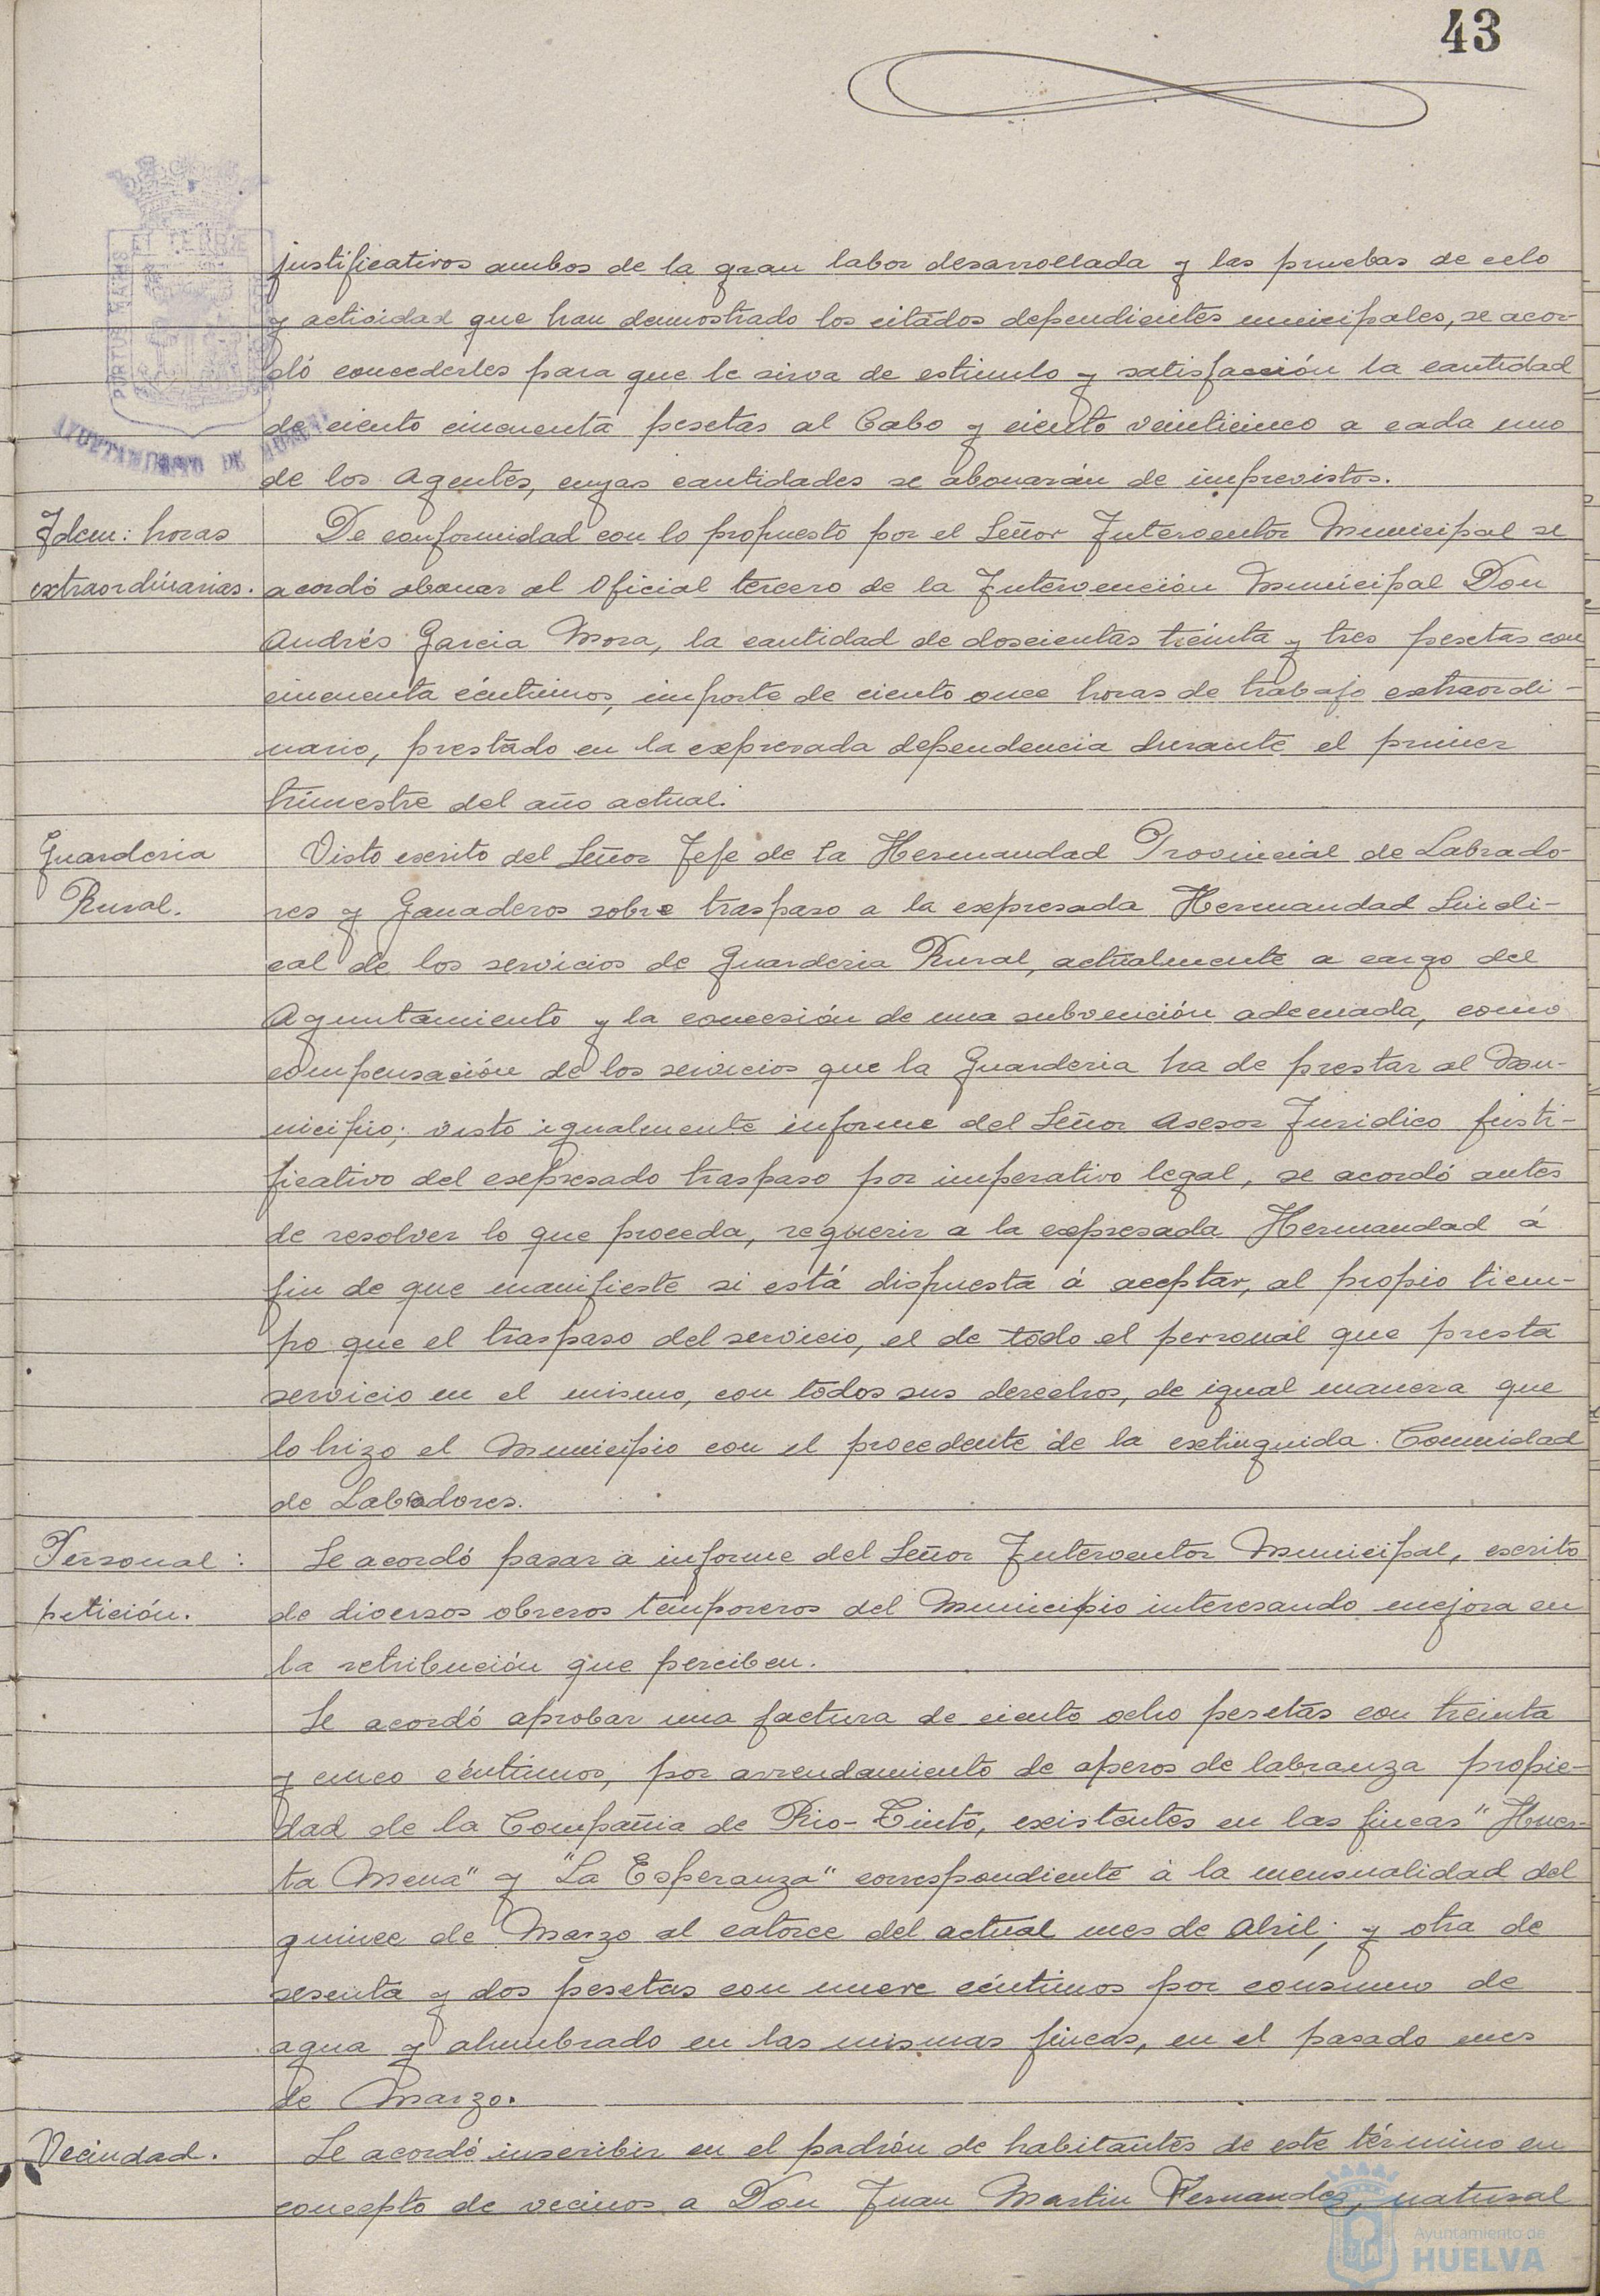 43
justificativos ambos de la gran labor desarrollada y las pruebas de celo
y actividad que han demostrado los citados dependientes municipales, se acor-
dó concederles para que le sirva de estimulo y satisfacción la cantidad
de ciento cincuenta pesetas al Cabo y ciento veinticinco a cada uno
de los Agentes, cuyas cantidades se abonarán de imprevistos.
Idem: horas
extraordinarias.
De conformidad con lo propuesto por el Señor Interventor Municipal se
acordó abonar al Oficial tercero de la Intervención Municipal Don
Andrés Garcia Mora, la cantidad de doscientas treinta y tres pesetas con
cincuenta céntimos, importe de ciento once horas de trabajo extraordi-
nario, prestado en la expresada dependencia durante el primer
trimestre del año actual.
Guarderia
Rural.
Visto escrito del Señor Jefe de la Hermandad Provincial de Labrado-
res y Ganaderos sobre traspaso a la expresada Hermandad Sindi-
cal de los servicios de Guarderia Rural, actualmente a cargo del
Ayuntamiento y la concesión de una subvención adecuada, como
compensación de los servicios que la Guarderia ha de prestar al Mu-
nicipio; visto igualmente informe del Señor Asesor Juridico justi-
ficativo del expresado traspaso por imperativo legal, se acordó antes
de resolver lo que proceda, requerir a la expresada Hermandad á
fin de que manifieste si está dispuesta á aceptar, al propio tiem-
po que el traspaso del servicio, el de todo el personal que presta
servicio en el mismo, con todos sus derechos, de igual manera que
lo hizo el Municipio con el procedente de la extinguida Comunidad
de Labradores.
Personal:
petición.
Se acordó pasar a informe del Señor Interventor Municipal, escrito
de diversos obreros temporeros del Municipio interesando mejora en
la retribución que perciben.
Se acordó aprobar una factura de ciento ocho pesetas con treinta
y cinco céntimos, por arrendamiento de aperos de labranza propie-
dad de la Compañia de Rio-Tinto, existentes en las fincas "Huer-
ta Mena" y "La Esperanza" correspondiente á la mensualidad del
quince de Marzo al catorce del actual mes de Abril; y otra de
sesenta y dos pesetas con nueve céntimos por consumo de
agua y alumbrado en las mismas fincas, en el pasado mes
de Marzo.
Vecindad.
Se acordó inscribir en el padrón de habitantes de este término en
concepto de vecinos a Don Juan Martin Fernandez, natural
PORTUS MARIS
ET TERRAE
AYUNTAMIENTO DE HUELVA
Ayuntamiento de
HUELVA